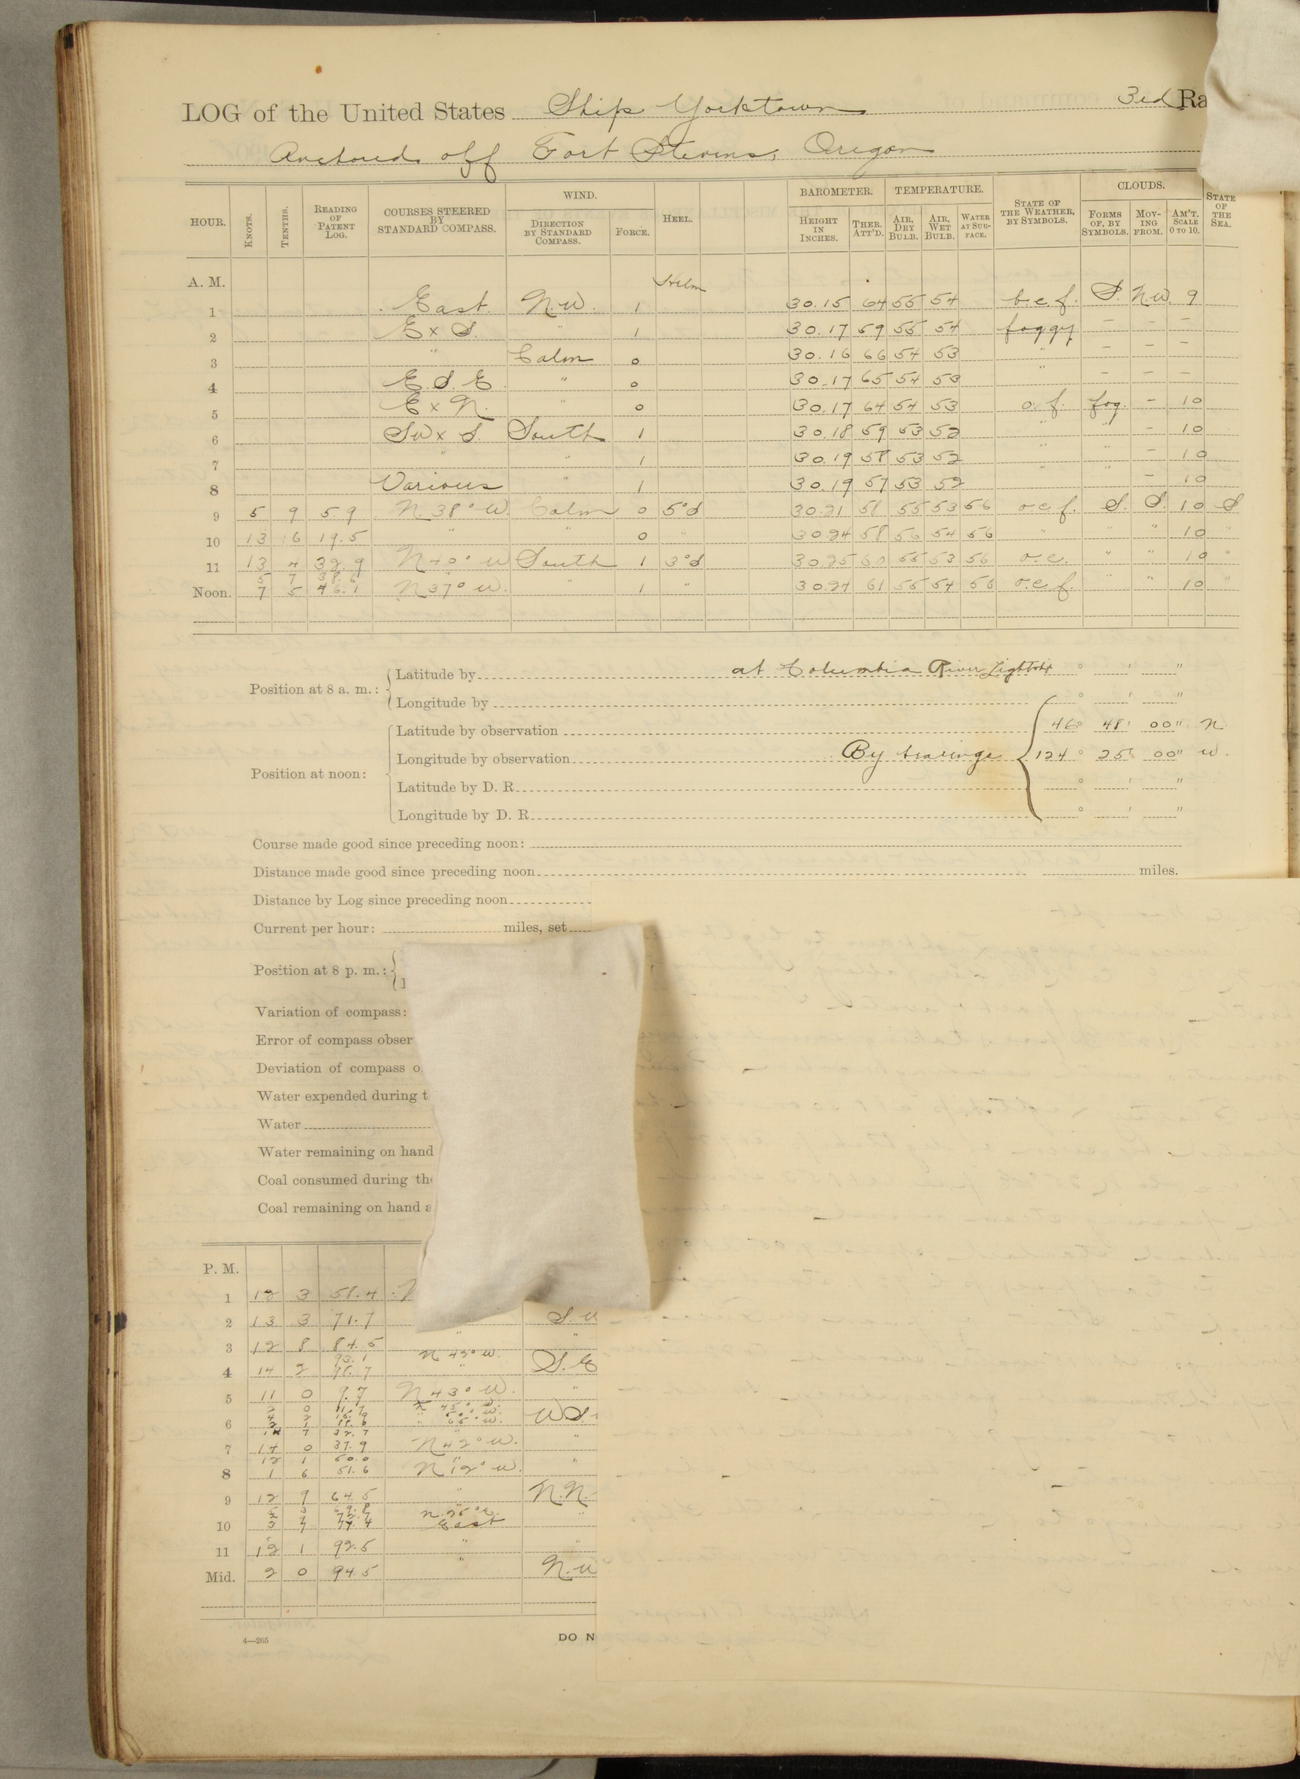 LOG of the United States Ship Yorktown 3rd Ra
Anchored off Fort Stevens, Oregon
HOUR. KNOTS. TENTHS. READING OF PATENT LOG. COURSES STEERED BY STANDARD COMPASS. WIND. DIRECTION BY STANDARD COMPASS. FORCE. HEEL. BAROMETER. HEIGHT IN INCHES. THER. ATT'D. TEMPERATURE. AIR, DRY BULB. AIR, WET BULB. WATER AT SURFACE. STATE OF THE WEATHER, BY SYMBOLS. CLOUDS. FORMS OF, BY SYMBOLS. MOVING FROM. AM'T. SCALE 0 TO 10. STATE OF THE SEA.
A. M. Helm
1 East N.W. 1 30.15 64 55 54 b.c.f. S. NW 9
2 E x S. " 1 30.17 59 55 54 foggy - - -
3 " Calm 0 30.16 66 54 53 " - - -
4 E.S.E. " 0 30.17 65 54 53 " - - -
5 E x N. " 0 30.17 64 54 53 o.f. fog. - 10
6 SW x S. South 1 30.18 59 53 52 " " - 10
7 " " 1 30.19 58 53 52 " " - 10
8 Various " 1 30.19 57 53 52 " " - 10
9 5 9 5.9 N.38° W. Calm 0 5°d 30.21 58 55 53 56 o.c.f. S. S. 10 S
10 13 6 19.5 " " 0 " 30.24 58 56 54 56 " " " 10 "
11 13 4 32.9 N 40° W South 1 3°d 30.25 60 55 53 56 o.c. " " 10 "
5 7 38.6
Noon. 7 5 46.1 N 37° W. " 1 " 30.24 61 55 54 56 o.c.f. " " 10 "
Position at 8 a. m.: Latitude by at Columbia River Lightship ° ' "
Longitude by ° ' "
Position at noon: Latitude by observation 46° 48' 00" N
Longitude by observation By bearings 124° 25' 00" W.
Latitude by D. R. ° ' "
Longitude by D. R. ° ' "
Course made good since preceding noon:
Distance made good since preceding noon miles.
Distance by Log since preceding noon
Current per hour: miles, set
Position at 8 p. m.:
Variation of compass:
Error of compass obser
Deviation of compass o
Water expended during t
Water
Water remaining on hand
Coal consumed during the
Coal remaining on hand a
P. M.
1 12 3 58.4 N
2 13 3 71.7 S.W
3 12 8 84.5 " "
93.1 N 42° W.
4 14 2 98.7 " S.E
5 11 0 9.7 N 43° W. "
2 0 11.7 N 45° W.
6 W S
14 7 32.7
7 14 0 37.9 N 42° W. "
12 1 50.0 "
8 1 6 51.6 N 12° W. "
9 12 9 64.5 " N.N.
10 77.4 East "
11 12 1 92.5 " "
Mid. 2 0 94.5 " N.W
4—265 DO N